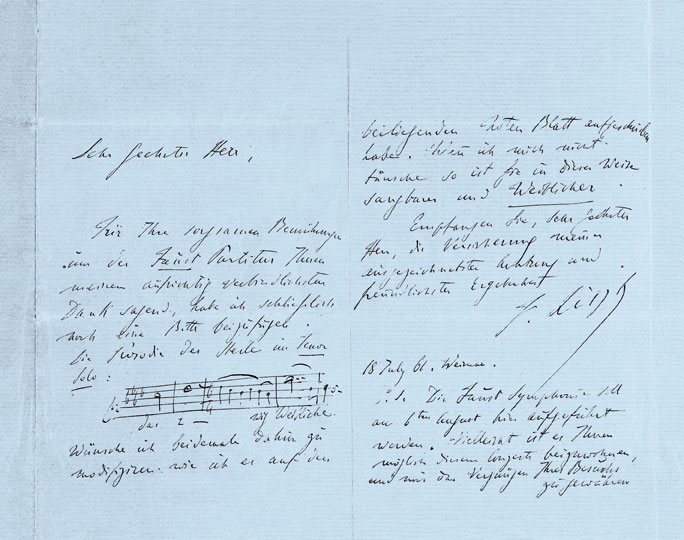 Sehr geehrter Herr,
Für Ihre sorgsamen Bemühungen
um der Faust Partitur Ihnen
meinen aufrichtig verbindlichsten
Dank sagend, habe ich schließlich
noch eine Bitte beizufügen.
Die Periode der Stelle im Tenor
Solo:
das wig Weibliche
Wünsche ich beidemale dahin zu
modifiziren wie ich es auf dem
beiliegenden Noten Blatt aufgeschrieben
habe. Wenn ich mich nicht
täusche so ist sie in dieser Weise
sangbarer und Weiblicher.
Empfangen Sie, sehr geehrter
Herr, die Versicherung meiner
ausgezeichnetsten Achtung und
freundlichster Ergebenheit
F. Liszt
18 July 61. Weimar.
P.S. Die Faust Symphonie soll
am 6ten August hier aufgeführt
werden. Vielleicht ist es Ihnen
möglich diesem Concerte beizuwohnen,
und mir das Vergnügen Ihres Besuchs
zu gewähren